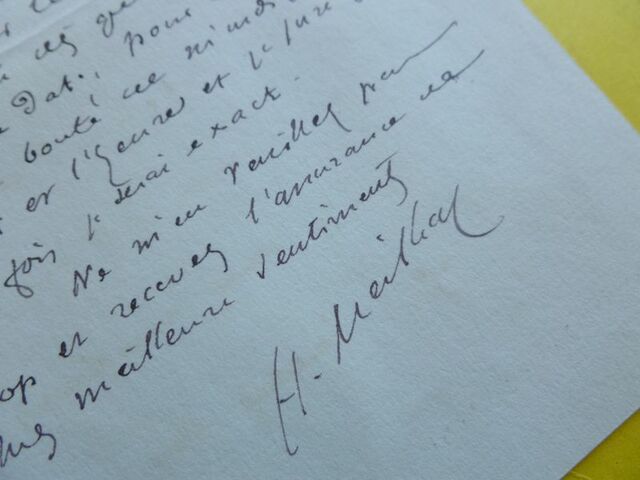 ces
Dat., pour
bonté de m'indi
et l'heure et je jure
fois je serai exact.
Ne m'en veuillez pas
op et recevez l'assurance de
mes meilleurs sentiments
H. Meilhac